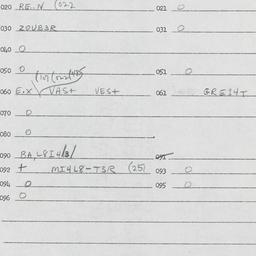 020 RE..N (022 021 0
030 ZOUB3R 031 0
040 0
050 0 051 0
060 E.X VAST VEST 061 GRE14T
070 0
080 0
090 BA,L8I4/3/ 091
092 + MI4L8-T3R (25) 093 0
094 0 095 0
096 0